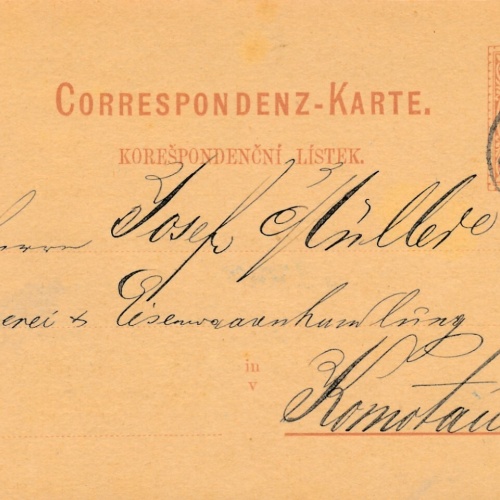 CORRESPONDENZ-KARTE.
KOREŠPONDENČNÍ LÍSTEK.
Josef Müller
erei & Eisenwaarenhandlung
in
v
Komotau